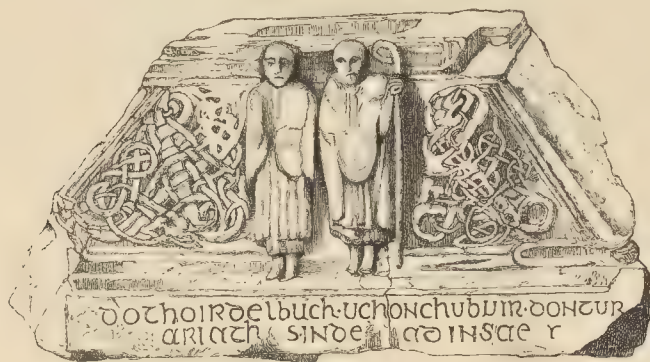 dothoirdelbuch·uchonchubuir·dontur
ariath sinde adinsae r